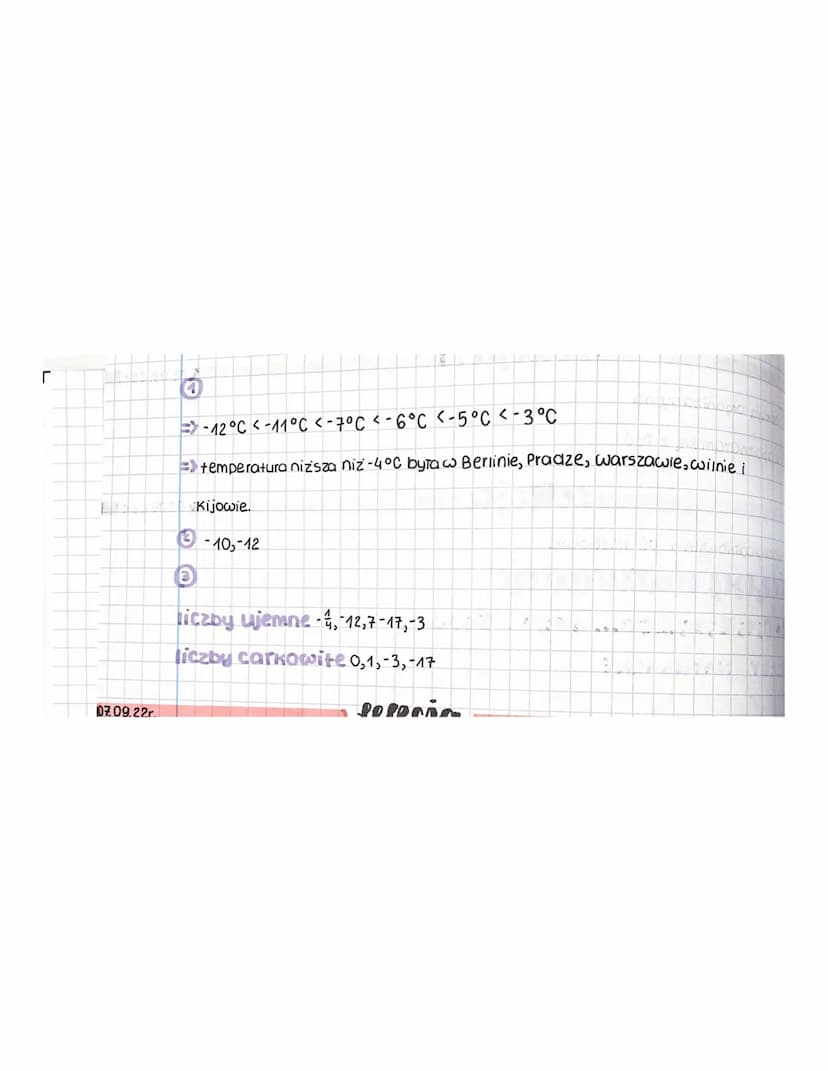 1
=> -12°C < -11°C < -7°C < -6°C < -5°C < -3°C
=> temperatura niższa niż -4°C była w Berlinie, Pradze, Warszawie, Wilnie i
Kijowie.
-10, -12
liczby ujemne -1/4, -12,7 -17, -3
liczby całkowite 0, 1, -3, -17
07.09.22r.